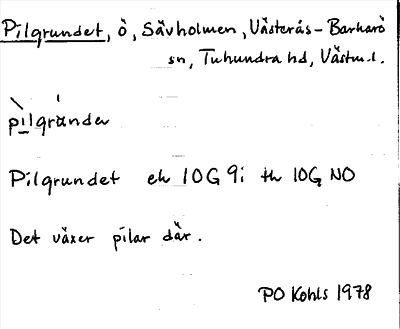 Pilgrundet, ö, Sävholmen, Västerås-Barkarö
sn, Tuhundra hd, Västm.l.
pilgrundet
Pilgrundet ek 10G 9i th 10G NO
Det växer pilar där.
PO Kohls 1978